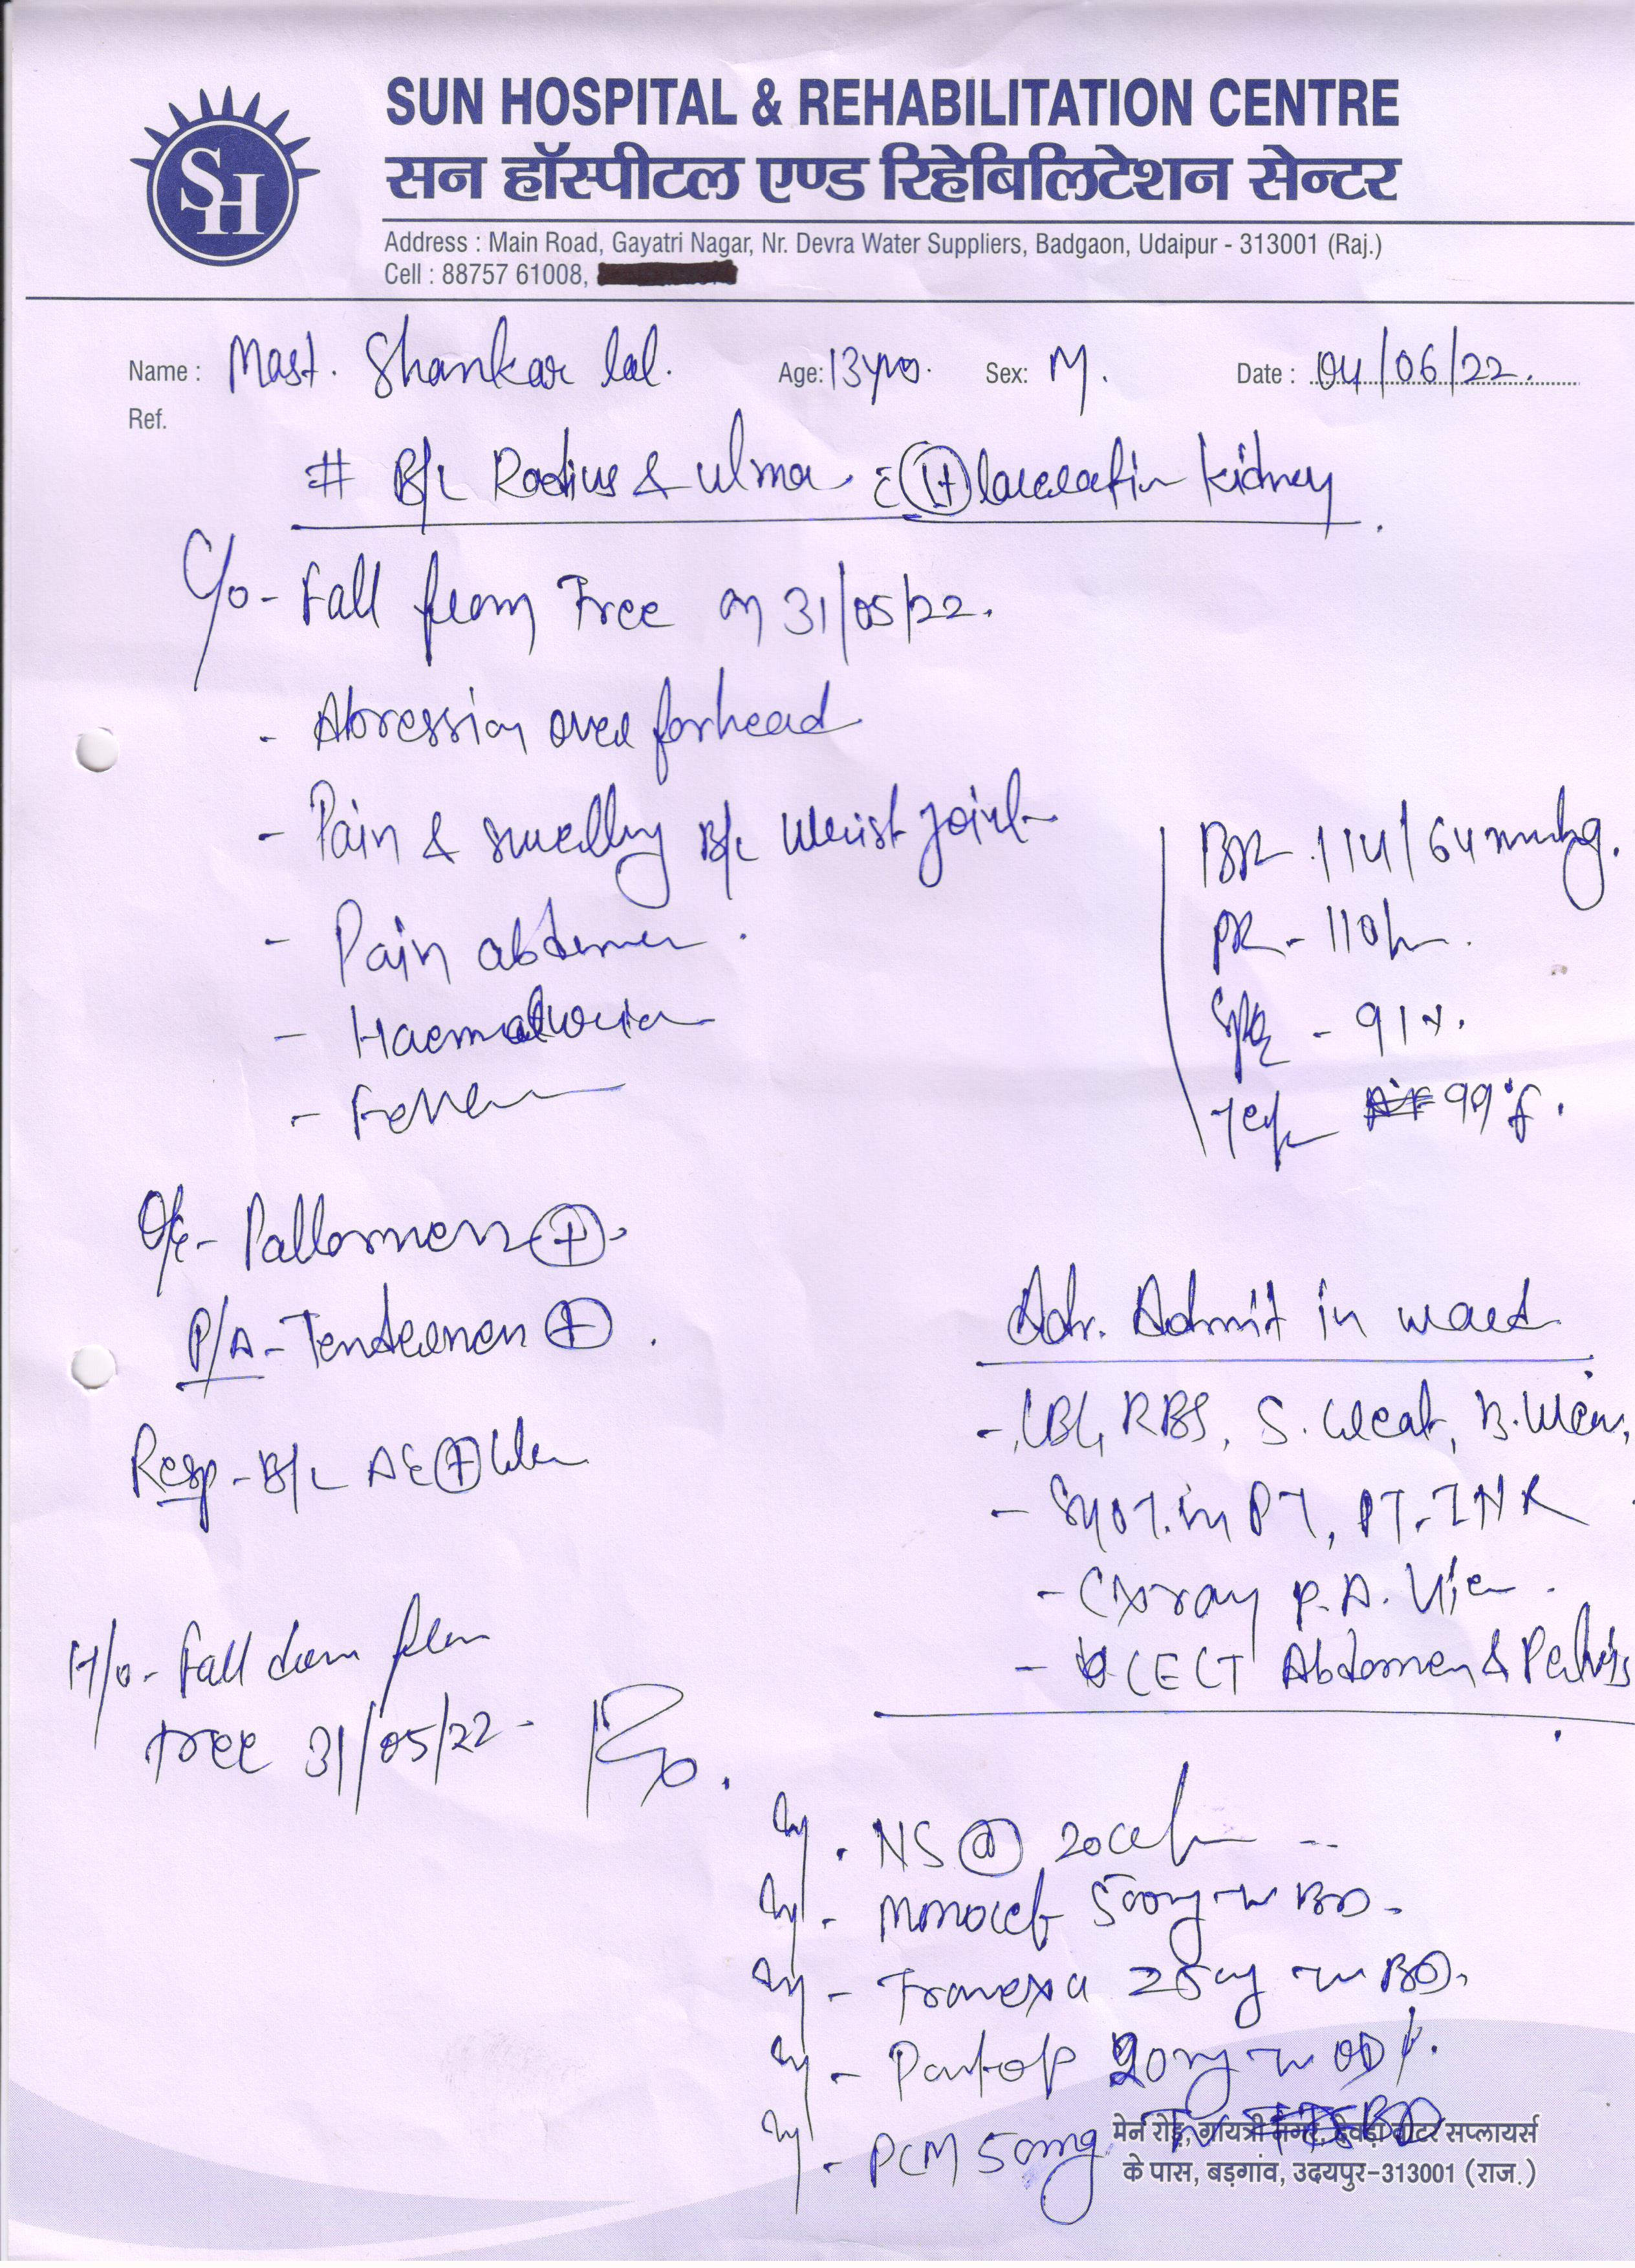 SH
SUN HOSPITAL & REHABILITATION CENTRE
सन हॉस्पीटल एण्ड रिहेबिलिटेशन सेन्टर
Address : Main Road, Gayatri Nagar, Nr. Devra Water Suppliers, Badgaon, Udaipur - 313001 (Raj.)
Cell : 88757 61008,
Name : Mast. Shankar lal. Age: 13yrs. Sex: M. Date : 04/06/22.
Ref.
# B/L Radius & ulna laceration kidney
C/o - Fall from Tree on 31/05/22.
- Abression over forhead
- Pain & swelling B/L Wrist joint
- Pain abdomen.
- Haematuria
- Fever
BP - 114/64 mmhg.
PR - 110/m.
SpO2 - 91%.
Temp 99°f.
O/E - Pallorness +
P/A - Tenderness +.
Resp - B/L AE + Clear
Adv. Admit in ward
- CBC, RBS, S. Creat, B. Urea,
- SGOT, SGPT, PT-INR
- CXray P.A. View.
- CECT Abdomen & Pelvis
H/o - Fall down from
tree 31/05/22 -
Rx.
Inj. NS @ 20cc/h
Inj - Monocef 500mg IV BD.
Inj - Tranexa IV BD.
Inj - Pantop 20mg IV OD
Inj. PCM IV BD
मेन रोड, गायत्री नगर, देवड़ा वाटर सप्लायर्स
के पास, बड़गांव, उदयपुर-313001 (राज.)